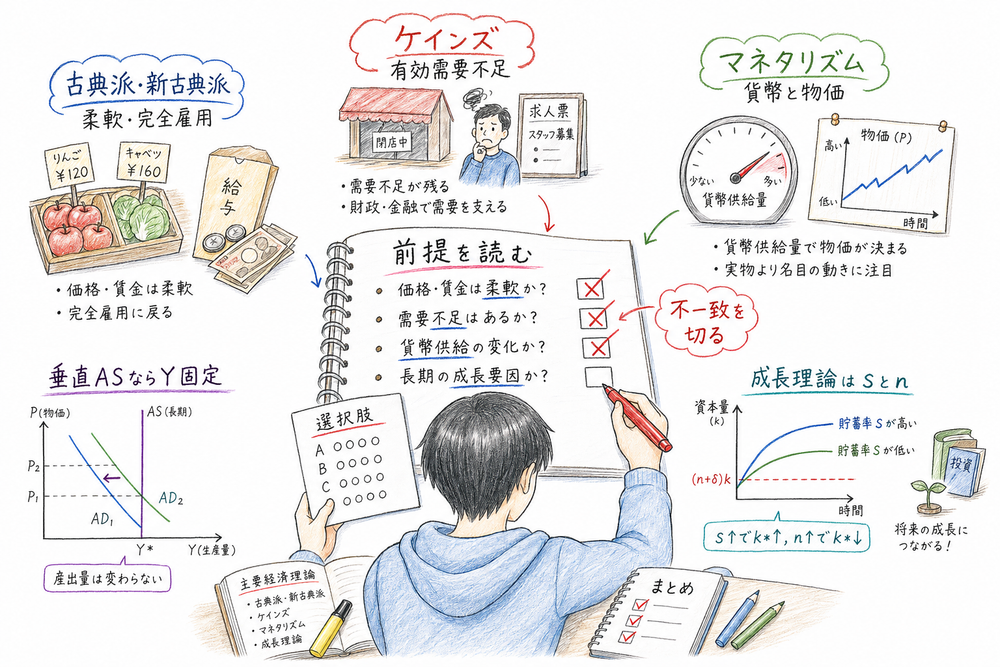 古典派・新古典派
柔軟・完全雇用
りんご
¥120
キャベツ
¥160
給与
・価格・賃金は柔軟
・完全雇用に戻る
ケインズ
有効需要不足
閉店中
求人票
スタッフ募集
・需要不足が残る
・財政・金融で需要を支える
マネタリズム
貨幣と物価
少ない
多い
貨幣供給量
物価(P)
高い
低い
時間
・貨幣供給量で物価が決まる
・実物より名目の動きに注目
前提を読む
・価格・賃金は柔軟か?
・需要不足はあるか?
・貨幣供給の変化か?
・長期の成長要因か?
不一致を
切る
選択肢
A
B
C
垂直ASならY固定
P(物価)
AS(長期)
P2
P1
AD1
AD2
Y*
Y(生産量)
産出量は変わらない
成長理論はSとn
資本量
(k)
貯蓄率Sが高い
貯蓄率Sが低い
(n+δ)k
時間
S↑でk*↑, n↑でk*↓
投資
将来の成長に
つながる!
主要経済理論
・古典派・新古典派
・ケインズ
・マネタリズム
・成長理論
まとめ